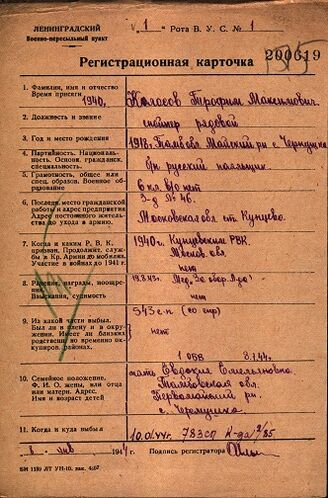 ЛЕНИНГРАДСКИЙ
Военно-пересыльный пункт
1 Рота В. У. С. № 1
200619
Регистрационная карточка
1. Фамилия, имя и отчество
Время присяги 1940,
Колосов Трофим Максимович
2. Должность и звание
снайпер рядовой
3. Год и место рождения
1918, Тамбовс Майский р-н с. Чернушка
4. Партийность. Национальность. Основн. гражданск. специальность.
б/п русский паяльщик
5. Грамотность, общее или спец. образов. Военное образование
6 кл. в/о нет
6. Последн. место гражданской работы и адрес предприятия
З-д № 46.
Адрес постоянного жительства до ухода в армию.
Московская обл ст. Кунцево.
7. Когда и каким Р. В. К. призван. Продолжит. службы в Кр. Армии до мобилиз. Участие в войнах до 1941 г.
1940 г. Кунцевским РВК.
Москов. обл.
нет
8. Ранения, награды, поощрения. Взыскания, судимость
19.8.43. Мед. "За обор. Л-да"
нет
9. Из какой части выбыл. Был ли в плену и в окружении. Имеет ли близких родственников во временно оккупиров. районах.
543 с.п
нет
1 058 8.1.44.
10. Семейное положение. Ф. И. О. жены, или отца или матери. Адрес. Имя и возраст детей
мать Евдокия Емельяновна
Тамбовская обл.
Первомайский рн.
с. Чернушка
11. Когда и куда выбыл
10.01.44г. 783сп к-да 2/85
8 янв 1944 г. Подпись регистратора